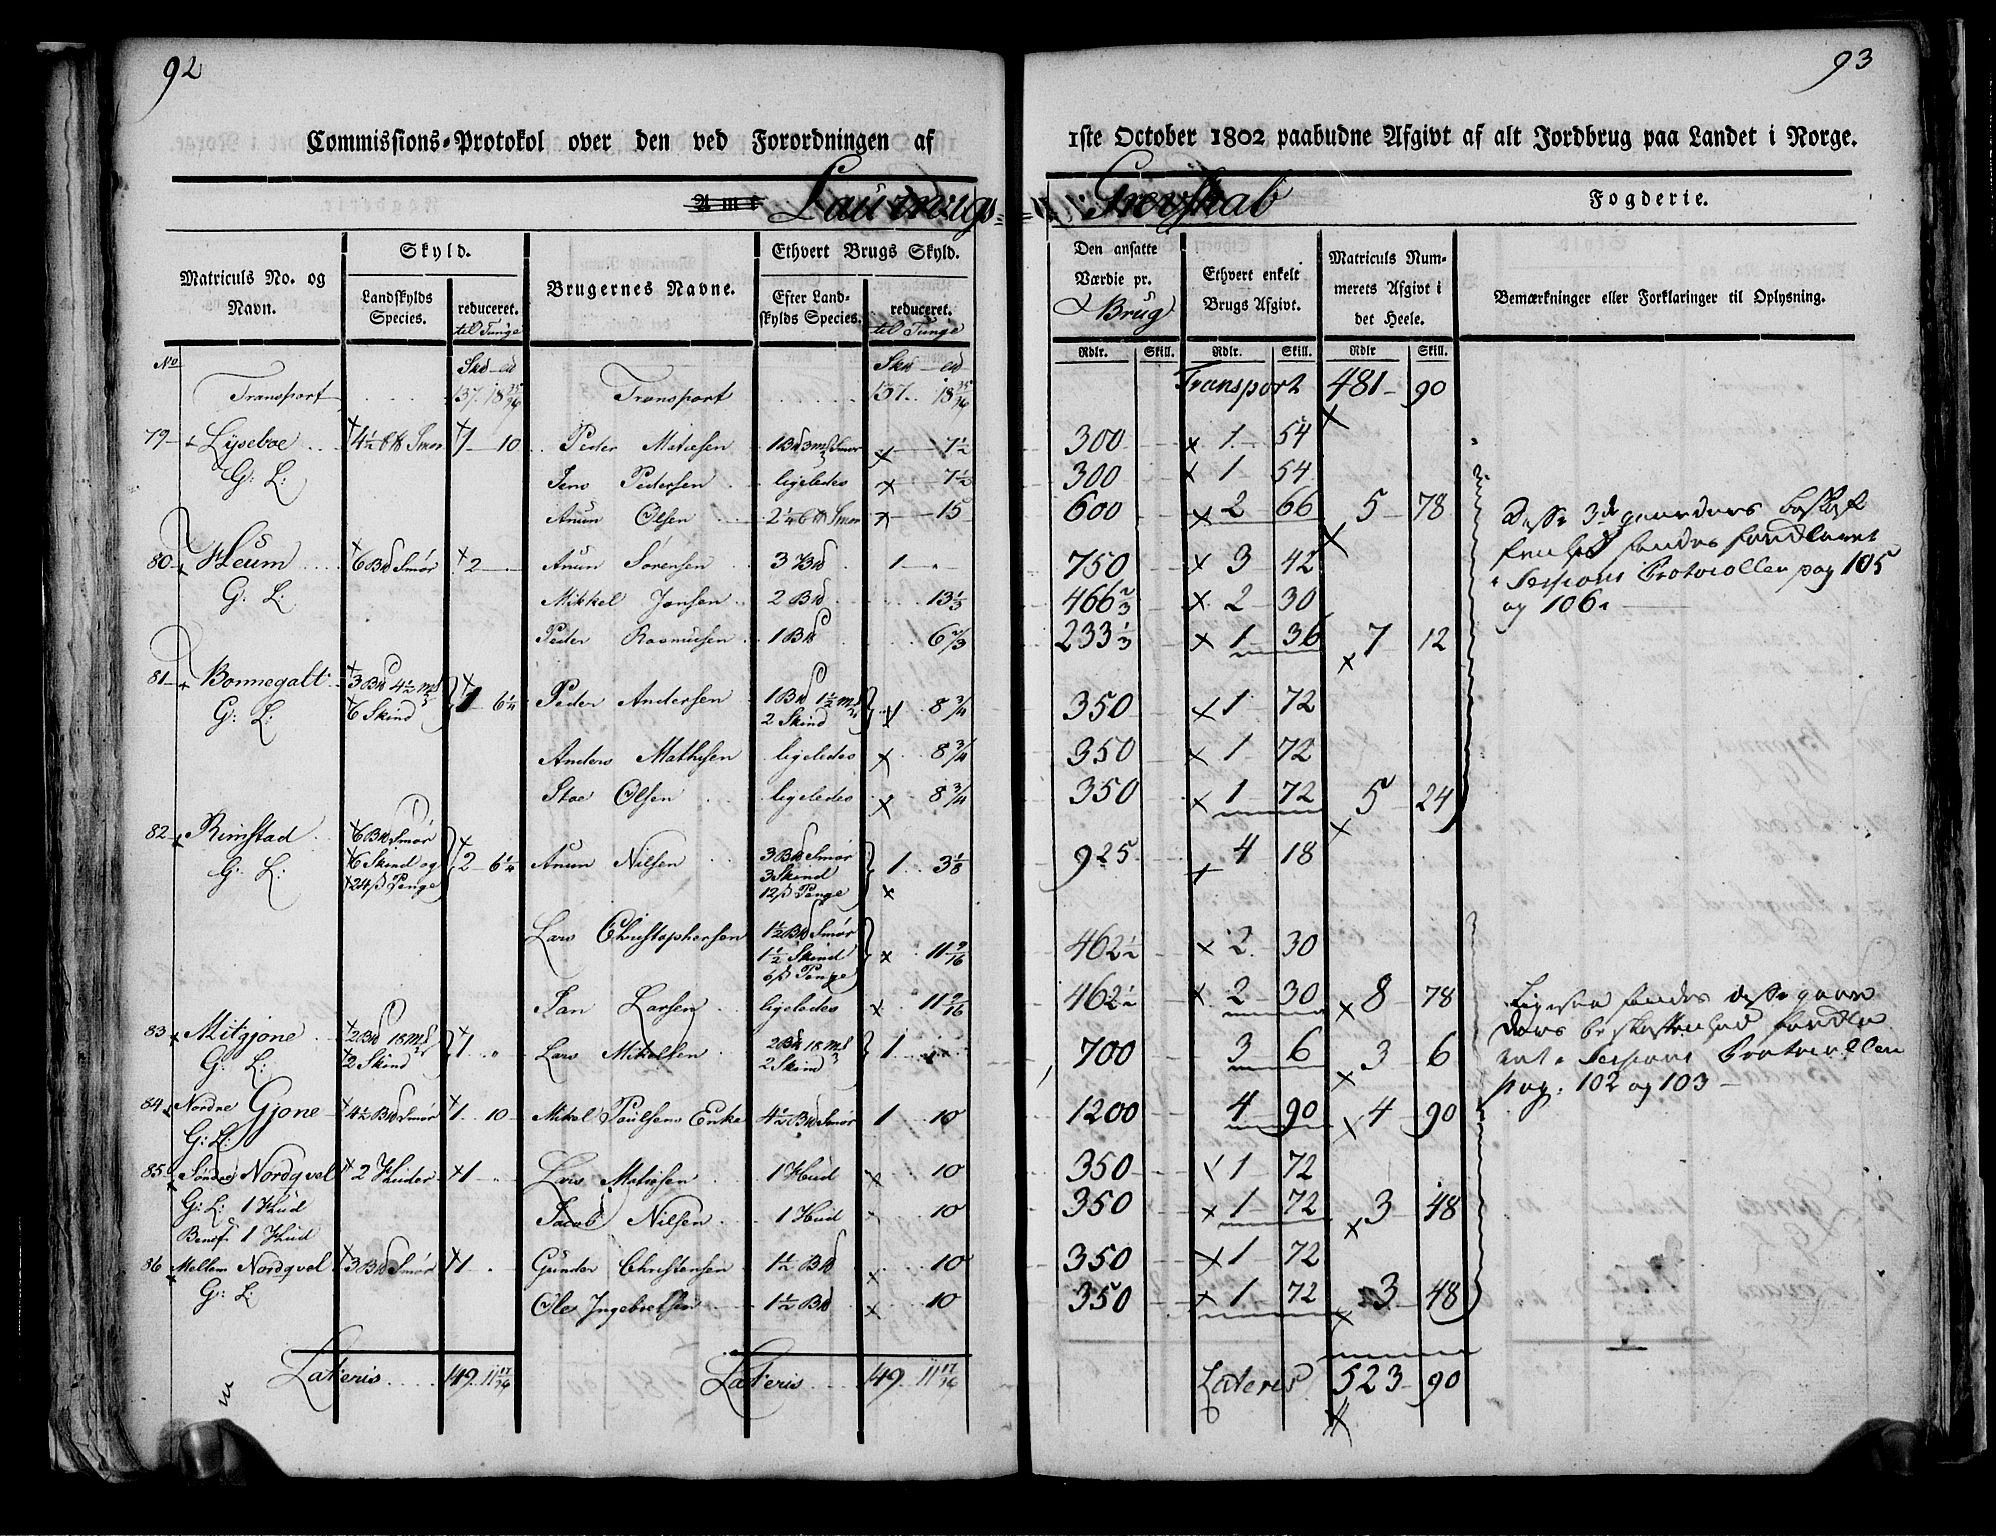 92
Commissions-Protokol over den ved Forordningen af
Amt Laurvigs
Matriculs No. og Navn.
Skyld.
Landskylds Species.
reduceret. til Tunge
Brugernes Navne.
Ethvert Brugs Skyld.
Efter Landskylds Species.
reduceret. til Tunge
No Skd
Transport 137. 18 25/36 Transport 137. 18 25/36
79 Lyseboe 4½ Smør 1 10 Peder Matiesen 7½
G: L: Jens Pedersen ligeledes 7½
Anun Olsen 2¼ Smør 15
80 Heum 6 Bd Smør 2 Anun Sørensen 3 Bd 1
G: L: Mikkel Jonsen 2 Bd 13⅓
Peder Rasmusen 1 Bd 6⅔
81 Bonnegalt 3 Bd 4½ mk 1 6¼ Peder Andersen 1 Bd 1½ mk 8¾
G: L: 6 Skind 2 Skind
Anders Mathisen ligeledes 8¾
Stoe Olsen ligeledes 8¾
82 Rimstad 6 Bd Smør 2 6¼ Anun Nilsen 3 Bd Smør 1 3⅛
G: L: 6 Skind og 3 Skind
24 ß Penge 12 ß Penge
Lars Christophersen 1½ Bd Smør 11 9/16
1½ Skind
6 ß Penge
Jan Larsen ligeledes 11 9/16
83 Mitgjone 2 Bd 18 mk 1 Lars Mikelsen 2 Bd 18 mk 1
G: L: 2 Skind 2 Skind
84 Nordre Gjone 4½ Bd Smør 1 10 Mikel Poulsens Enke 4½ Bd Smør 1 10
G: L:
85 Søndre Nordqvel 2 Huder 1 Lars Matiesen 1 Hud 10
G: L: 1 Hud Jacob Nilsen 1 Hud 10
Benef. 1 Hud
86 Mellem Nordqvel 3 Bd Smør 1 Gunder Christensen 1½ Bd 10
G: L: Ole Ingebretsen 1½ Bd 10
Lateris 149. 11 17/36 Lateris 149 11 17/36
93
1ste October 1802 paabudne Afgivt af alt Jordbrug paa Landet i Norge.
Grevskab Fogderie.
Den ansatte Værdie pr. Brug
Ethvert enkelt Brugs Afgivt.
Matriculs Nummerets Afgivt i det Heele.
Bemærkninger eller Forklaringer til Oplysning.
Rdlr. Skill. Rdlr. Skill. Rdlr Skill.
Transport 481 90
300 1 54
300 1 54
600 2 66 5 78
750 3 42
466⅔ 2 30
233⅓ 1 36 7 12
350 1 72
350 1 72
350 1 72 5 24
925 4 18
462½ 2 30
462½ 2 30 8 78
700 3 6 3 6
1200 4 90 4 90
350 1 72
350 1 72 3 48
350 1 72
350 1 72 3 48
Lateris 523 90
Disse 3de gaarders beskaf
fenhed findes forklaret
i Sessions Protocollen pag 105
og 106.
Ligesaa findes disse gaar
ders beskaffenhed forkla
ret i Sessions Protocollen
pag: 102 og 103